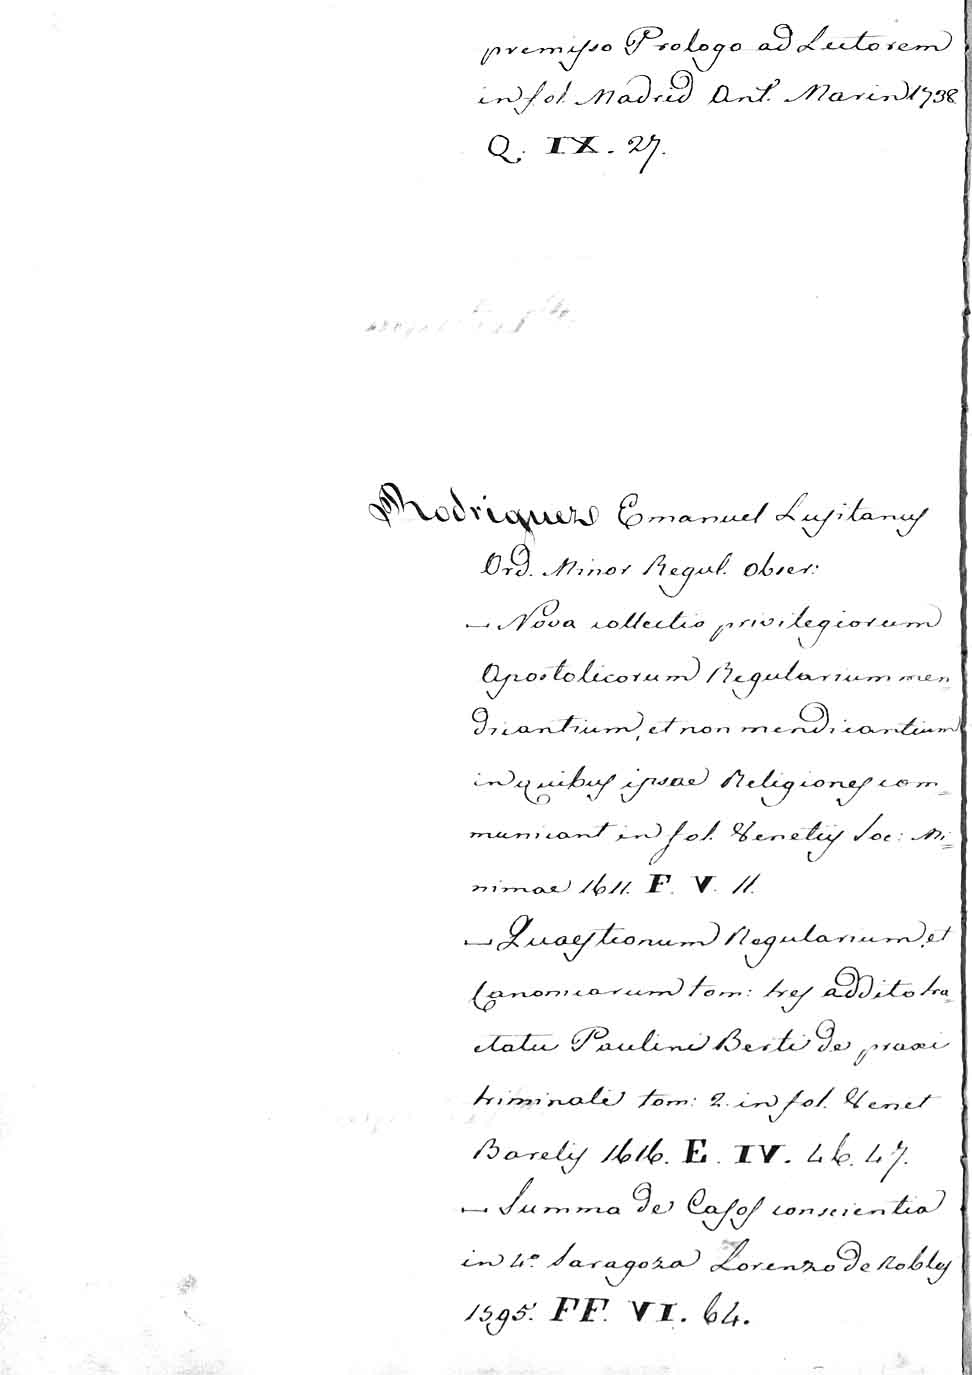 premisso Prologo ad Lectorem
in fol. Madrid Ant. Marin 1738
Q. IX. 27.
Rodriguez Emanuel Lusitanus
Ord. Minor Regul. Obser:
— Nova collectio privilegiorum
Apostolicorum Regularium men=
dicantium, et non mendicantium
in quibus ipsae Religiones com=
municant in fol. Venetiis Soc: Mi=
nimae 1611. F. V. 11.
— Quaestionum Regularium, et
Canonicarum tom: tres addito tra=
ctatu Paulini Berti de praxi
criminale tom: 2. in fol. Venet
Barelis 1616. E. IV. 46. 47.
— Summa de Casos conscientia
in 4.o Saragoza Lorenzo de Robles
1595. FF. VI. 64.